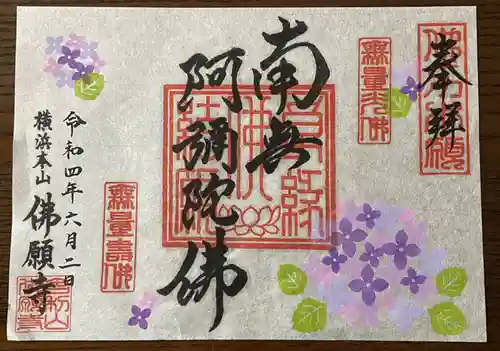 奉拝
無量光佛
南無
阿彌陀佛
無量壽佛
令和四年六月二日
横浜本山
佛願寺